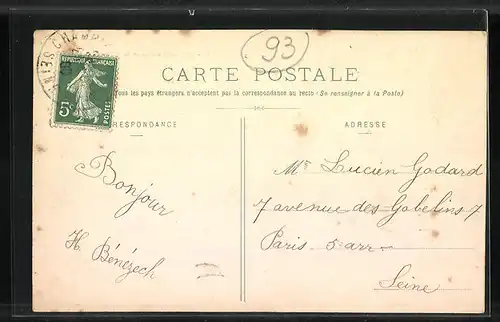 93
CARTE POSTALE
Tous les pays étrangers n'acceptent pas la correspondance au recto (Se renseigner à la Poste)
RESPONDANCE
ADRESSE
REPUBLIQUE FRANÇAISE
5c
POSTES
Bonjour
H. Bénézech
Mr Lucien Godard
7 avenue des Gobelins 7
Paris 5 arr
Seine